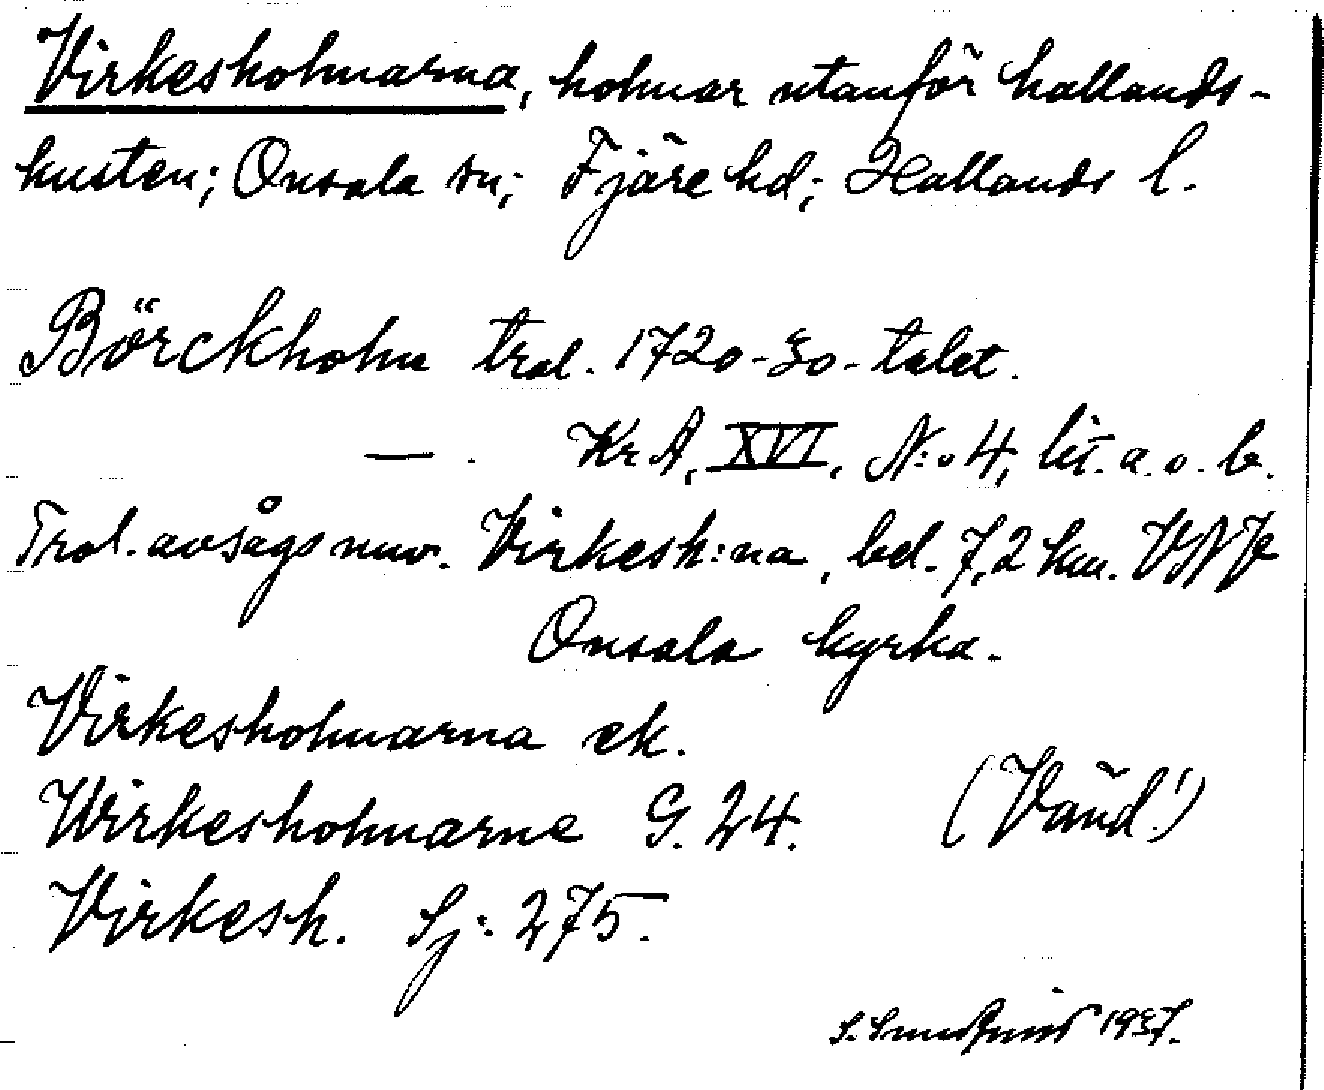 Virkesholmarna, holmar utanför hallands-
kusten; Onsala sn; Fjäre hd; Hallands l.
Börckholm trol. 1720-30-talet.
— . Kr A, XVI, N:o 4, lit. a. o. b.
Trol. avsågs nuv. Virkesh:na, bel. 7,2 km. VNV
Onsala kyrka.
Virkesholmarna ek.
Wirkesholmarne G. 24. (Vänd!)
Virkesh. Sj: 275.
S. Sundquist 1937.